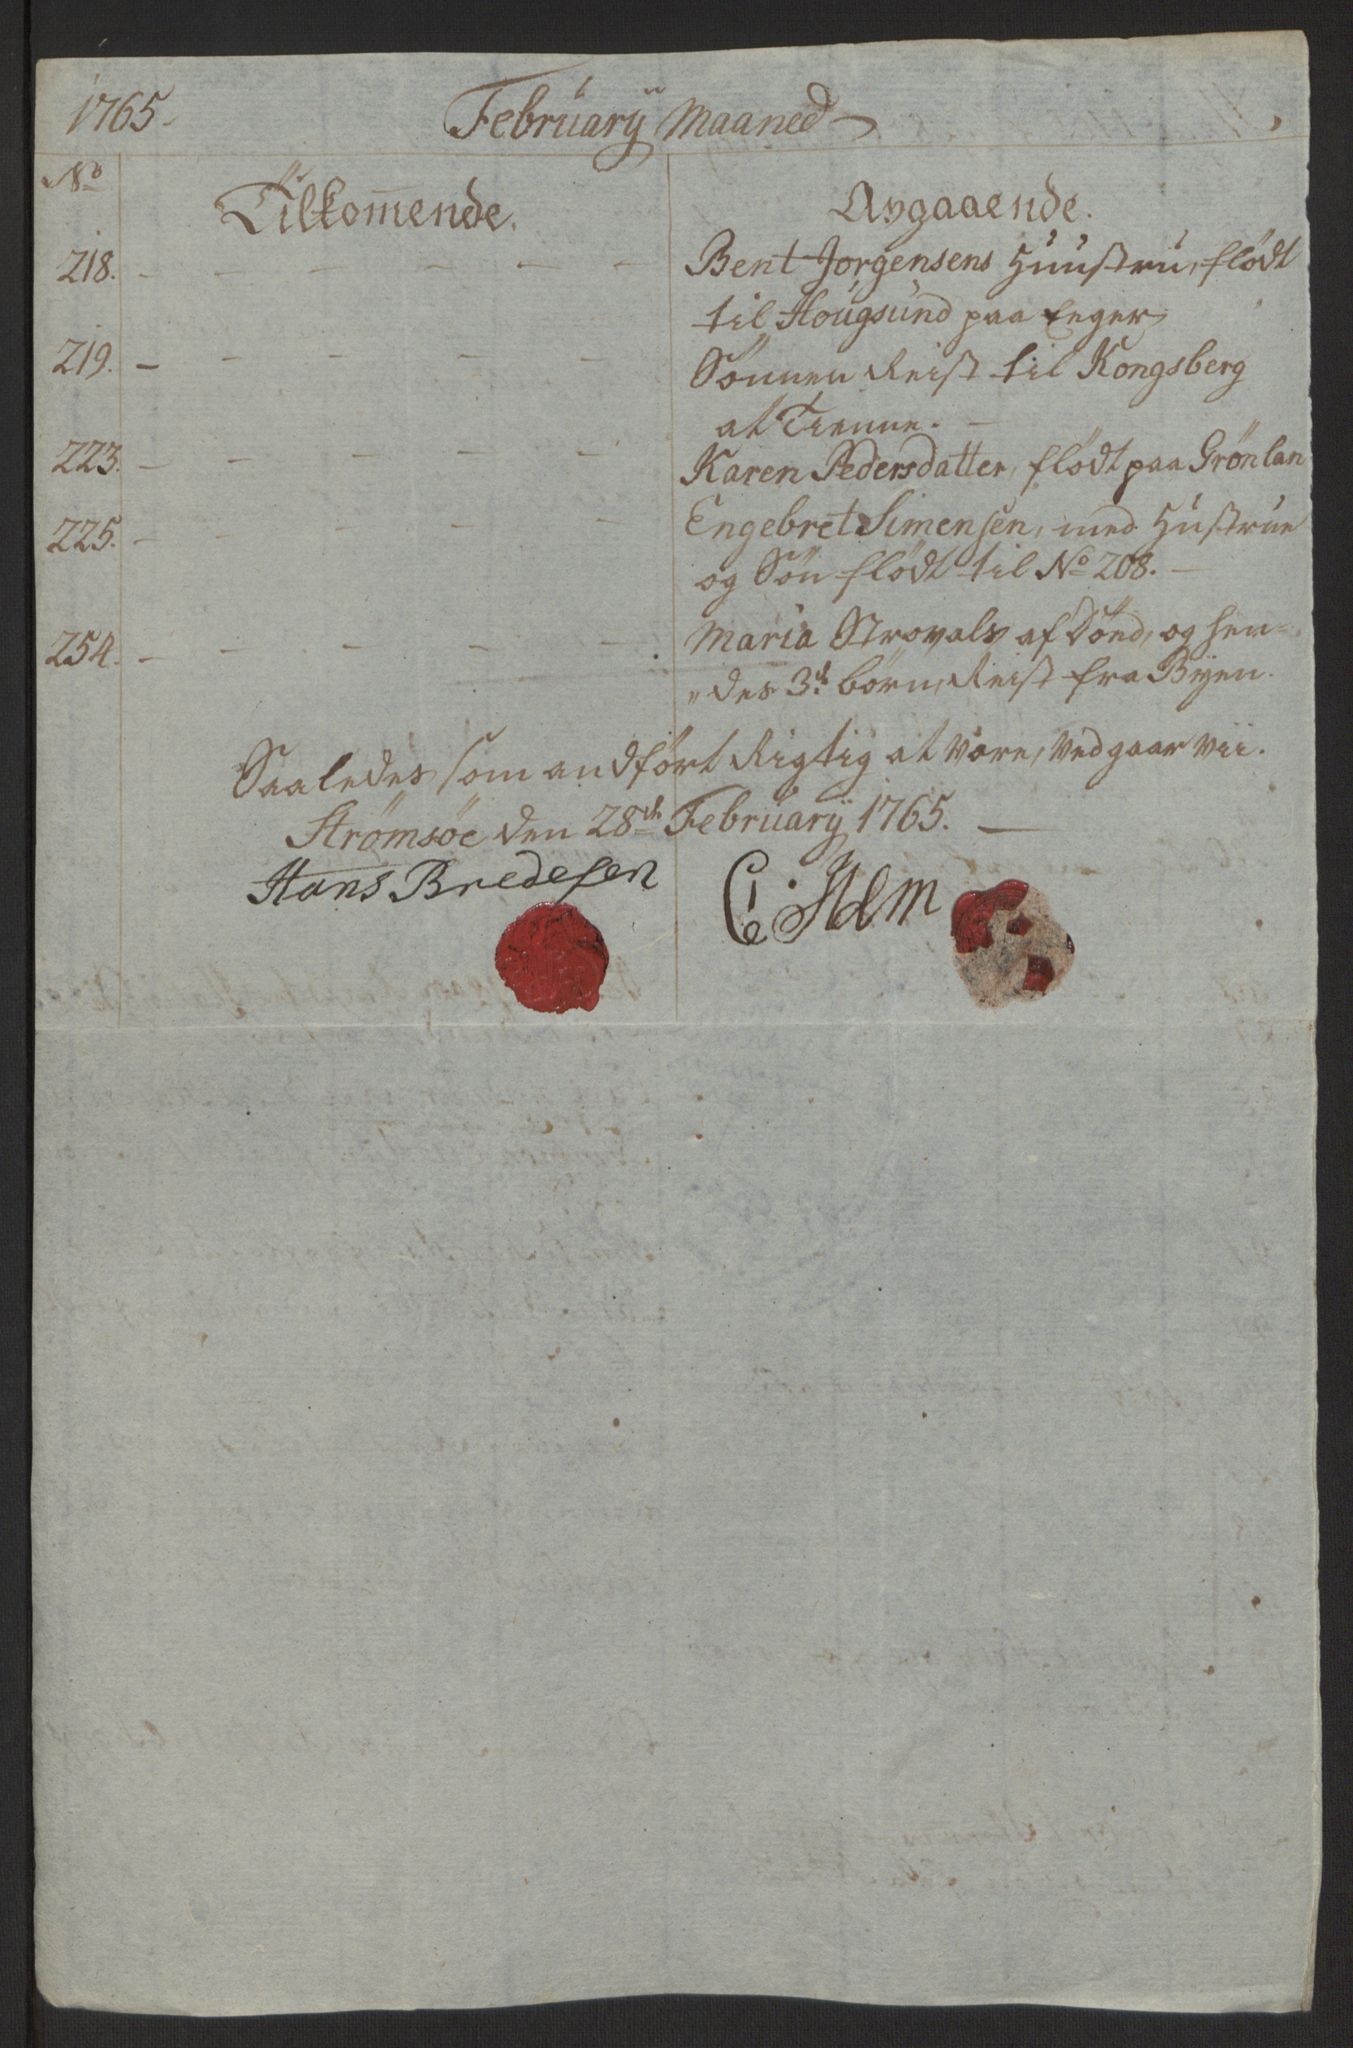 1765.
Februarÿ Maaned
No
Tilkom̄ende.
Avgaaende.
218. - - - - - -
Bent Jorgensens Huustru, flödt
til Hougsund paa Eeger
219. - - - - -
Sönnen Reist til Kongsberg
at Tienne. -
223. - - - - -
Karen Pedersdatter, flödt paa Grönlan
225. - - - - -
Engebret Simensen, med Hustrue
og Sön flödt til No 208. -
254. - - - - -
Maria Strovals af Döed, og hen-
"des 3de börn, Reist fra Byen.
Saaledes som andfört Rigtig at være, vedgaar vii.
Strömsöe den 28de Februarÿ 1765. -
Hans Bredesen